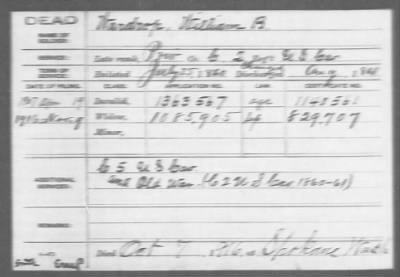 DEAD
Wardrop, William B.
NAME OF SOLDIER:
SERVICE: Late rank, Priv Co. C, 2 U S Cav
TERM OF SERVICE: Enlisted July 25, 1860 Discharged Aug, 186
DATE OF FILING. CLASS. APPLICATION NO. LAW. CERTIFICATE NO.
1907 19 Invalid, 1363567 age 1140561
1916 Widow, 1085,905 829,707
Minor,
ADDITIONAL SERVICES: C 5 U S Cav
and Old War (Co 2 U S Cav 1860-61)
REMARKS:
Died Oct 7 1916, at Spokane Wash